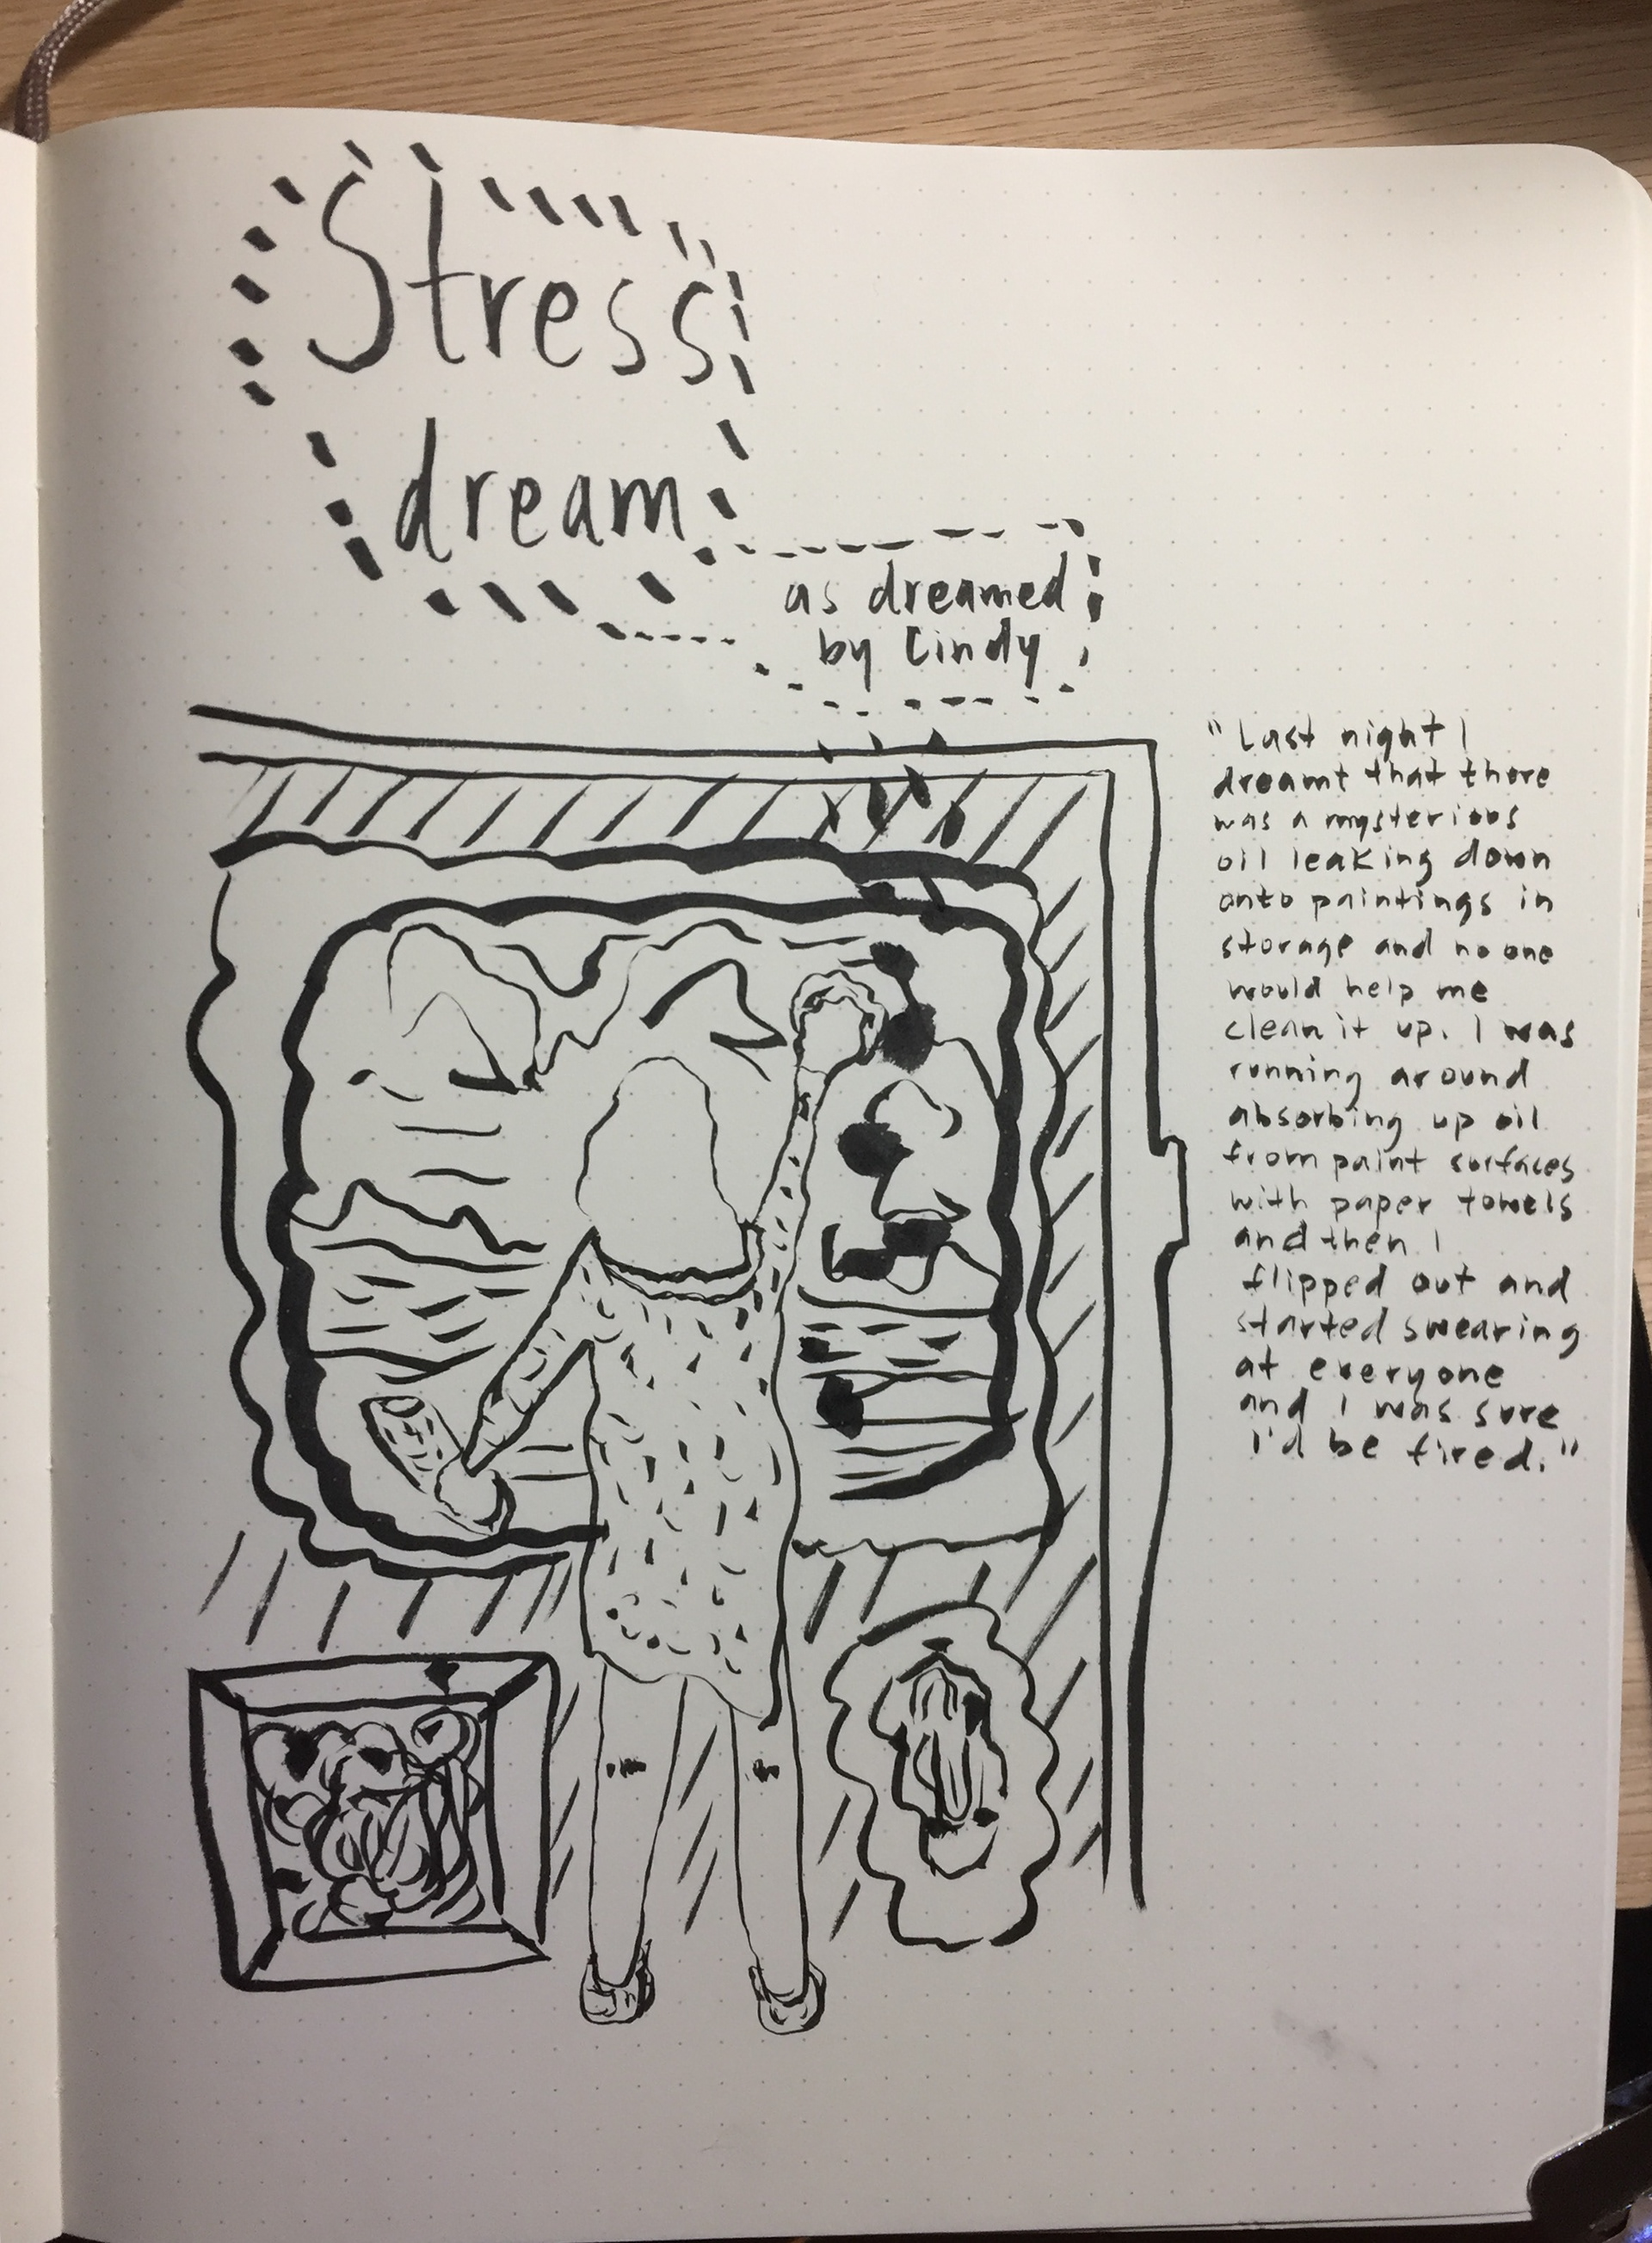 Stress
dream
as dreamed
by Cindy
"Last night I
dreamt that there
was a mysterious
oil leaking down
onto paintings in
storage and no one
would help me
clean it up. I was
running around
absorbing up oil
from paint surfaces
with paper towels
and then I
flipped out and
started swearing
at everyone
and I was sure
I'd be fired."